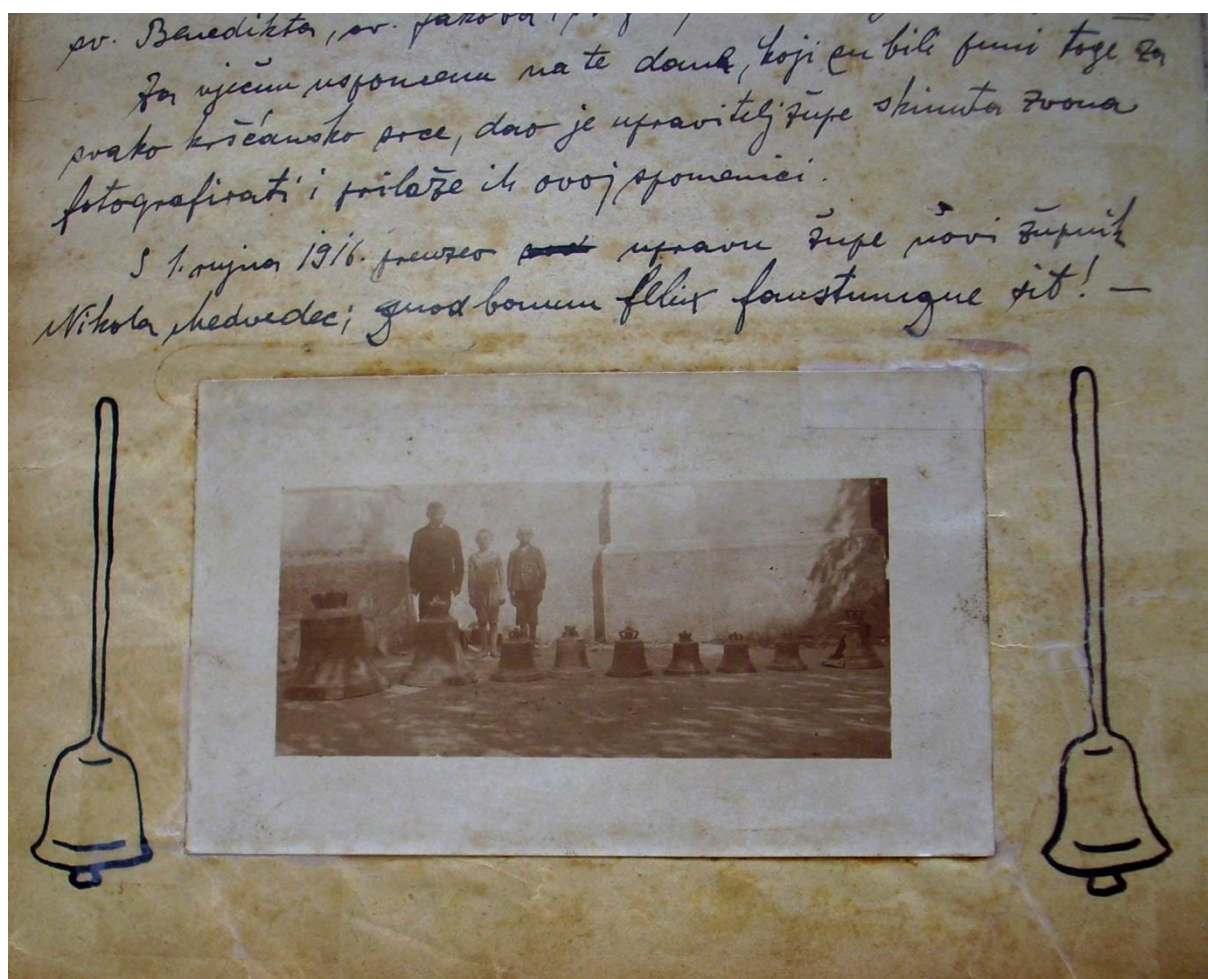 sv. Benedikta, sv. Jakova
Za vječnu uspomenu na te dane, koji su bili puni tuge za
svako kršćansko srce, dao je upravitelj župe skinuta zvona
fotografirati i prilaže ih ovoj spomenici.
S 1. rujna 1916. preuzeo upravu župe novi župnik
Nikola Medvedec; quod bonum felix faustumque sit! —